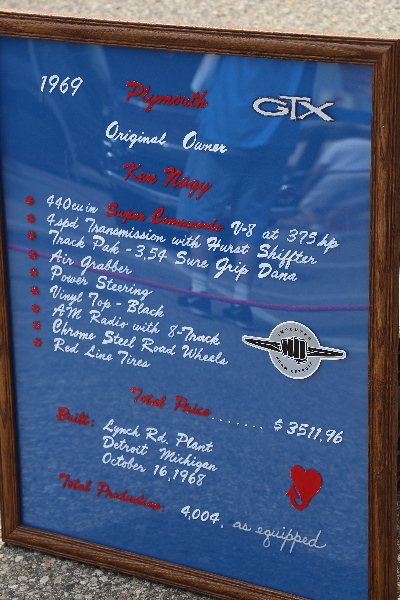 1969 Plymouth GTX
Original Owner
Ken Nagy
440cu in Super Commando V-8 at 375hp
4spd Transmission with Hurst Shiffter
Track Pak - 3.54 Sure Grip Dana
Air Grabber
Power Steering
Vinyl Top - Black
AM Radio with 8-Track
Chrome Steel Road Wheels
Red Line Tires
Total Price........ $3511.96
Built: Lynch Rd. Plant
Detroit Michigan
October 16, 1968
Total Production: 4,004, as equipped